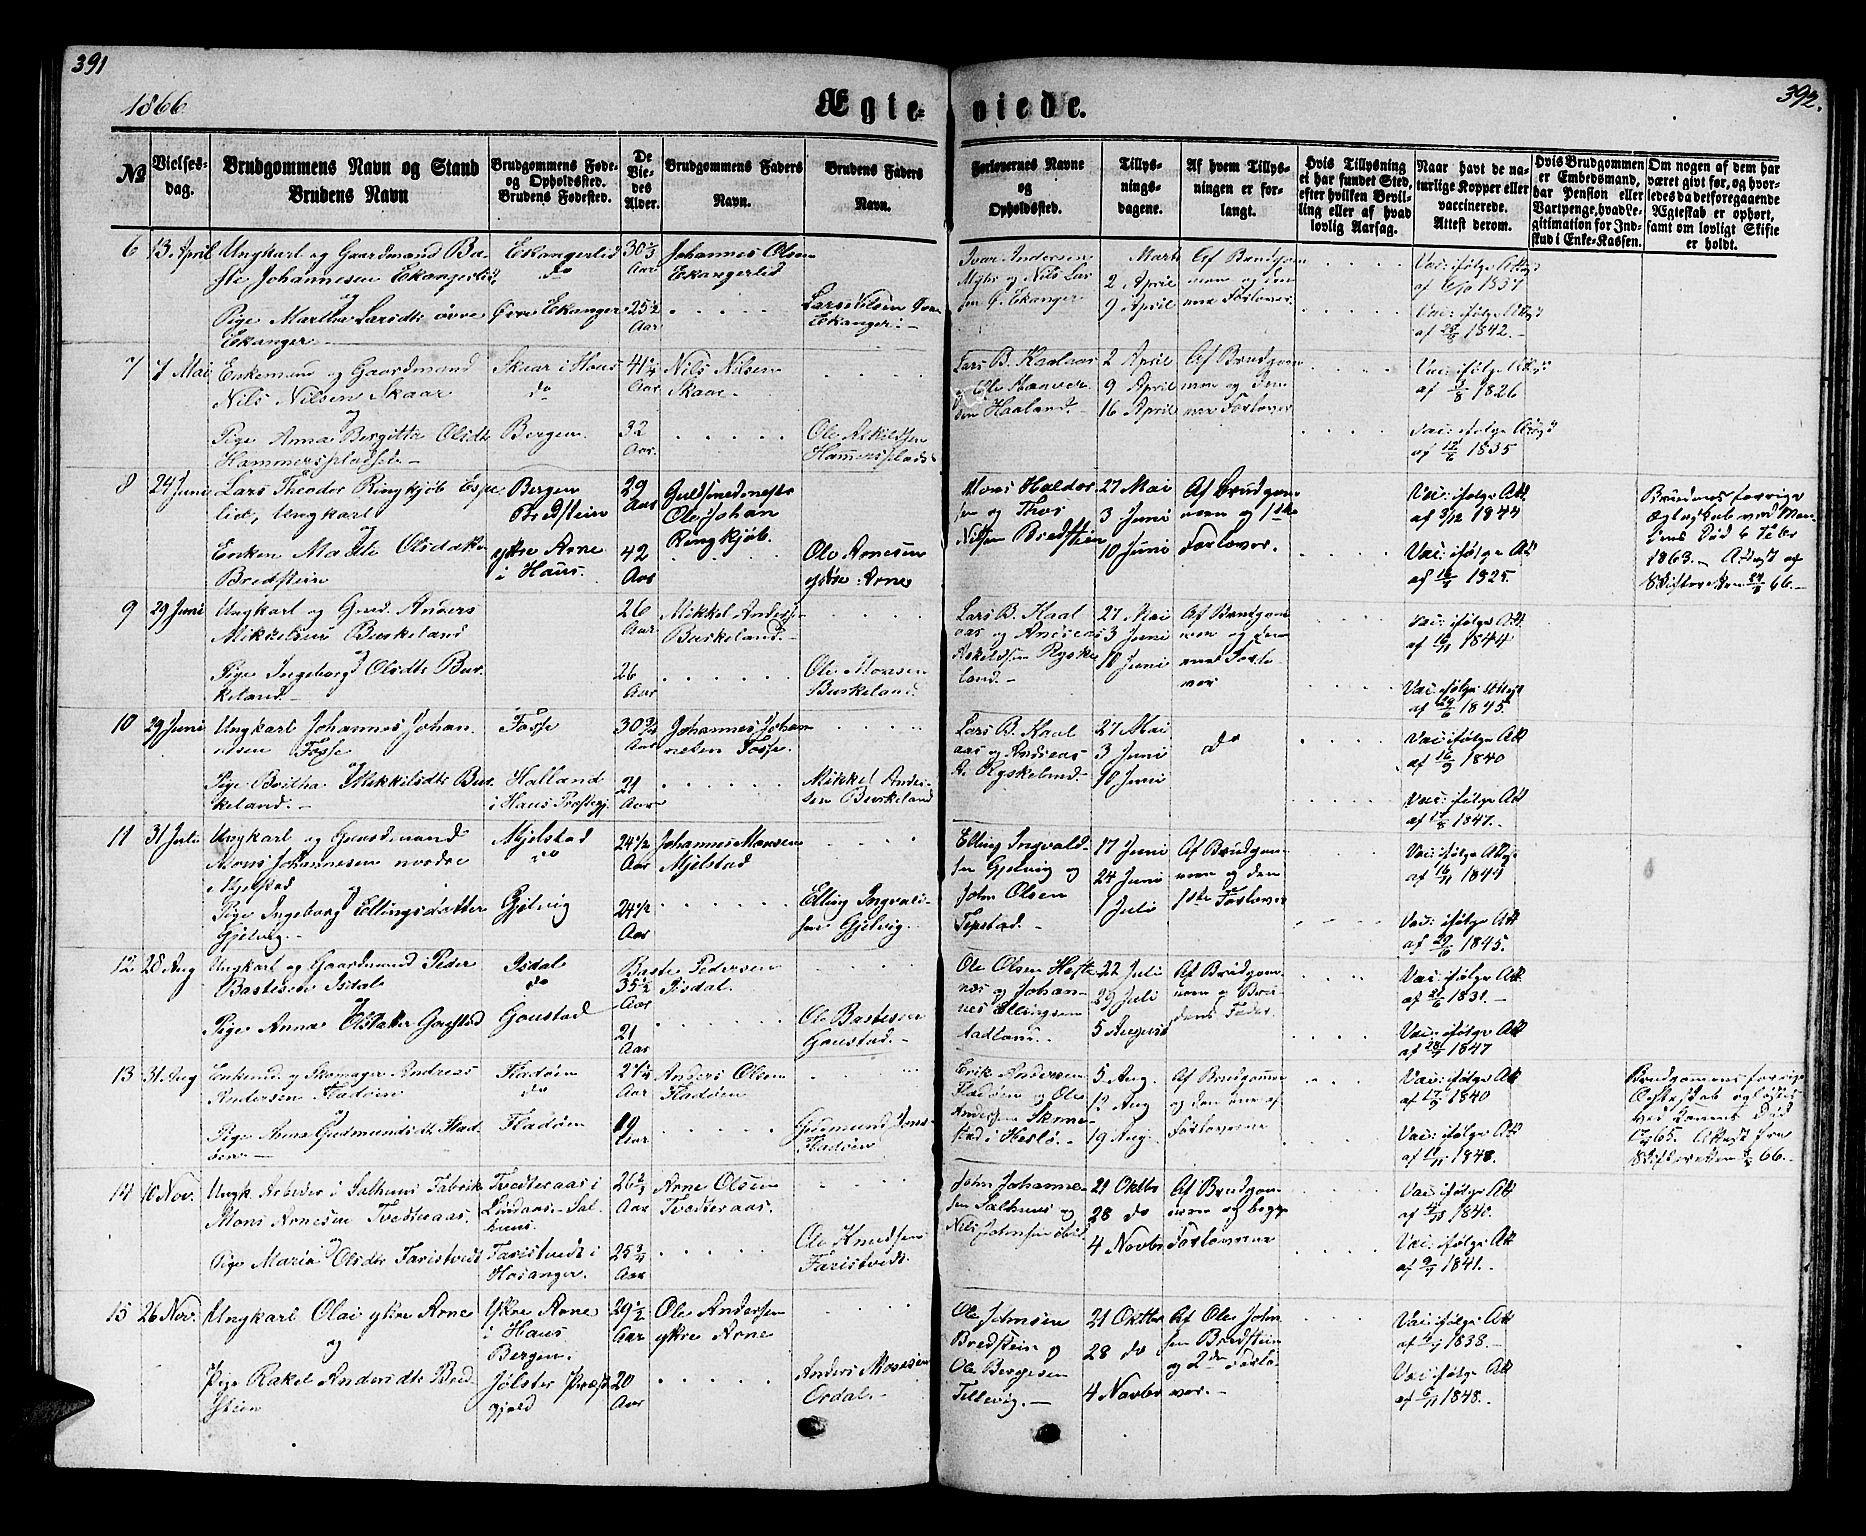 391
392.
1866
Ægte-
viede.
No
Vielses-
dag.
Brudgommens Navn og Stand
Brudens Navn
Brudgommens Føde-
og Opholdssted.
Brudens Fødested.
De
Vie-
des
Alder.
Brudgommens Faders
Navn.
Brudens Faders
Navn.
Forlovernes Navne
og
Opholdssted.
Tillys-
nings-
dagene.
Af hvem Tillys-
ningen er for-
langt.
Hvis Tillysning
ei har fundet Sted,
efter hvilken Bevil-
ling eller af hvad
lovlig Aarsag.
Naar havt de na-
turlige Kopper eller
vaccinerede.
Attest derom.
Hvis Brudgommen
er Embedsmand,
har Pension eller
Vartpenge, hvad Le-
gitimation for Ind-
skud i Enke-Kassen.
Om nogen af dem har
været givt før, og hvor-
ledes da det foregaaende
Ægteskab er ophørt,
samt om lovligt Skifte
er holdt.
6 13 April Ungkarl og Gaardmand Ba-
ste Johannesen Ekangerlid
og
Pige Martha Larsdtr øvre
Ekanger
Ekangerlid
do
Øvre Ekanger
30 1/2
Aar
25 1/2
Aar
Johannes Olsen
Ekangerlid
Lars Nilsen
Ekanger
Ivar Andersen
og Nils Lar
sen Ekanger
Marts
2 April
9 April
Af Brudgom
men og den
ene Forlover.
Vac: ifølge Att
af 1857
Vac: ifølge Att
af 1842.
7 7 Mai Enkemand og Gaardmand
Nils Nilsen Skaar
og
Pige Anna Bergitta Olsdtr
Hammerspladsen
Skaar i Haus
do
Bergen.
41 1/4
Aar
32
Aar
Nils Nilsen
Skaar
Ole Askildsen
Hammersplads
Lars B. Haalaas
og Ole
sen Haaland.
2 April
9 April
16 April
Af Brudgom
men og den
ene Forlover
Vac: ifølge Att
af 1826
Vac: ifølge Att
af 1835
8 24 Juni Lars Theodor Ringkjøb Espe
lid, Ungkarl
og
Enken Madle Olsdatter
Bredstein
Bergen
Bredstein
ytre Arne
i Haus.
29
Aar
42
Aar
Guldsmedmestr
Ole Johan
Ringkjøb.
Ole Arnesen
ytre Arne
Mons Haldor
sen og Thos
Nilsen Bredstein
27 Mai
3 Juni
10 Juni
Af Brudgom
men og 1ste
Forlover.
Vac: ifølge Att
af 3/12 1844
Vac: ifølge Att
af 1825.
Brudens forrige
Ægteskab ved Man
dens Død 6
1863. Attest af
Skifteretten 66.
9 29 Juni Ungkarl og Grmd. Anders
Mikkelsen Burkeland
og
Pige Ingeborg Olsdtr Bur
keland.
26
Aar
26
Aar
Mikkel Anders
Burkeland.
Ole Monsen
Burkeland.
Lars B. Haal
aas og Andreas
Askildsen Ryske
land.
27 Mai
3 Juni
10 Juni
Af Brudgom
men og den
ene Forlo
ver
Vac: ifølge Att
af 1844
Vac: ifølge Attest
af 1845.
10 29 Juni Ungkarl Johannes Johan
nesen Fosse
og
Pige Britha Mikkelsdtr Bur
keland.
Fosse
Halland
i Haus Præstegj.
30 3/4
Aar
21
Aar
Johannes Johan
nesen Fosse.
Mikkel Ander
sen Burkeland
Lars B. Haal
aas og Andreas
A. Ryskeland.
27 Mai
3 Juni
10 Juni
do
Vac: ifølge Att
af 1840
Vac: ifølge Att
af 1847.
11 31 Juli Ungkarl og Gaardmand
Mons Johannesen nordre
Mjelstad
og
Pige Ingeborg Ellingsdatter
Gjelvig.
Mjelstad
do
Gjelvig
24 1/2
Aar
24 1/2
Aar
Johannes Monsen
Mjelstad
Elling Ingvald
sen Gjelvig.
Elling Ingvald-
sen Gjelvig og
John Olsen
17 Juni
24 Juni
1 Juli
Af Brudgom-
men og den
1ste Forlover
Vac: ifølge Att
af 1844
Vac: ifølge Att
af 1845.
12 28 Aug Ungkarl og Gaardmand Peder
Bastesen Isdal
og
Pige Anna Olsdatter Goustad
Isdal
do
Goustad
Baste Pedersen
35 1/2 Isdal.
Aar
21
Aar
Ole Bastesen
Goustad.
Ole Olsen Hoste
næs og Johan-
nes Ellingsen
Aadland.
22 Juli
29 Juli
5 August
Af Brudgom-
men og Bru-
dens Fader.
Vac: ifølge Att
af 1831.
Vac: ifølge Att
af 1847
13 31 Aug Enkemd. og Skomager Andreas
Andersen Fladøen
og
Pige Anna Gudmundsdtr Flad-
øen
Fladøen
do
Fladøen
27 1/4
Aar
19
Aar
Anders Olsen
Fladøen
Gudmund
Fladøen
Erik Andersen
Fladøen og Ole
Andersen
i Herlø.
5 Aug.
12 Aug
19 Aug.
Af Brudgommen
og den ene af
Forloverne
Vac: ifølge Att
af 1840
Vac: ifølge Att
af 1848.
Brudgommens forrige
Ægteskab opløst
ved Konens Død
65. Attest fra
Skifteretten 66.
14 10 Nov. Ungk. Arbeider i Salhus Fabrik
Mons Arnesen Tvedteraas.
og
Pige Maria Olsdtr Faristvedt
Tvedteraas i
Lindaas. Sal-
huus.
Faristvedt i
Hosanger.
26 2/3
Aar
25 3/4
Aar
Arne Olsen
Tvedteraas.
Ole Knudsen
Faristvedt.
John Johanne
sen Salhuus og
Nils Johnsen ibid.
21 Oktbr
28 do
4 Novbr
Af Brudgom-
men og begge
Forloverne
Vac: ifølge Att
af 1840.
Vac: ifølge Att
af 1841.
15 26 Nov. Ungkarl Olai ytre Arne
og
Pige Rakel Andersdtr Bred
stein
Ytre Arne
i Haus
Bergen.
Jølster Præste
gjeld
29 1/2
Aar
20
Aar
Ole Andersen
ytre Arne
Anders Monsen
Ordal.
Ole Johnsen
Bredstein og
Ole Bergesen
Tellevig.
21 Oktbr
28 do
4 Novbr
Af Ole John
sen Bredstein
og 2den Forlo-
ver.
Vac: ifølge Att
af 1838.
Vac: ifølge Att
af 1848.